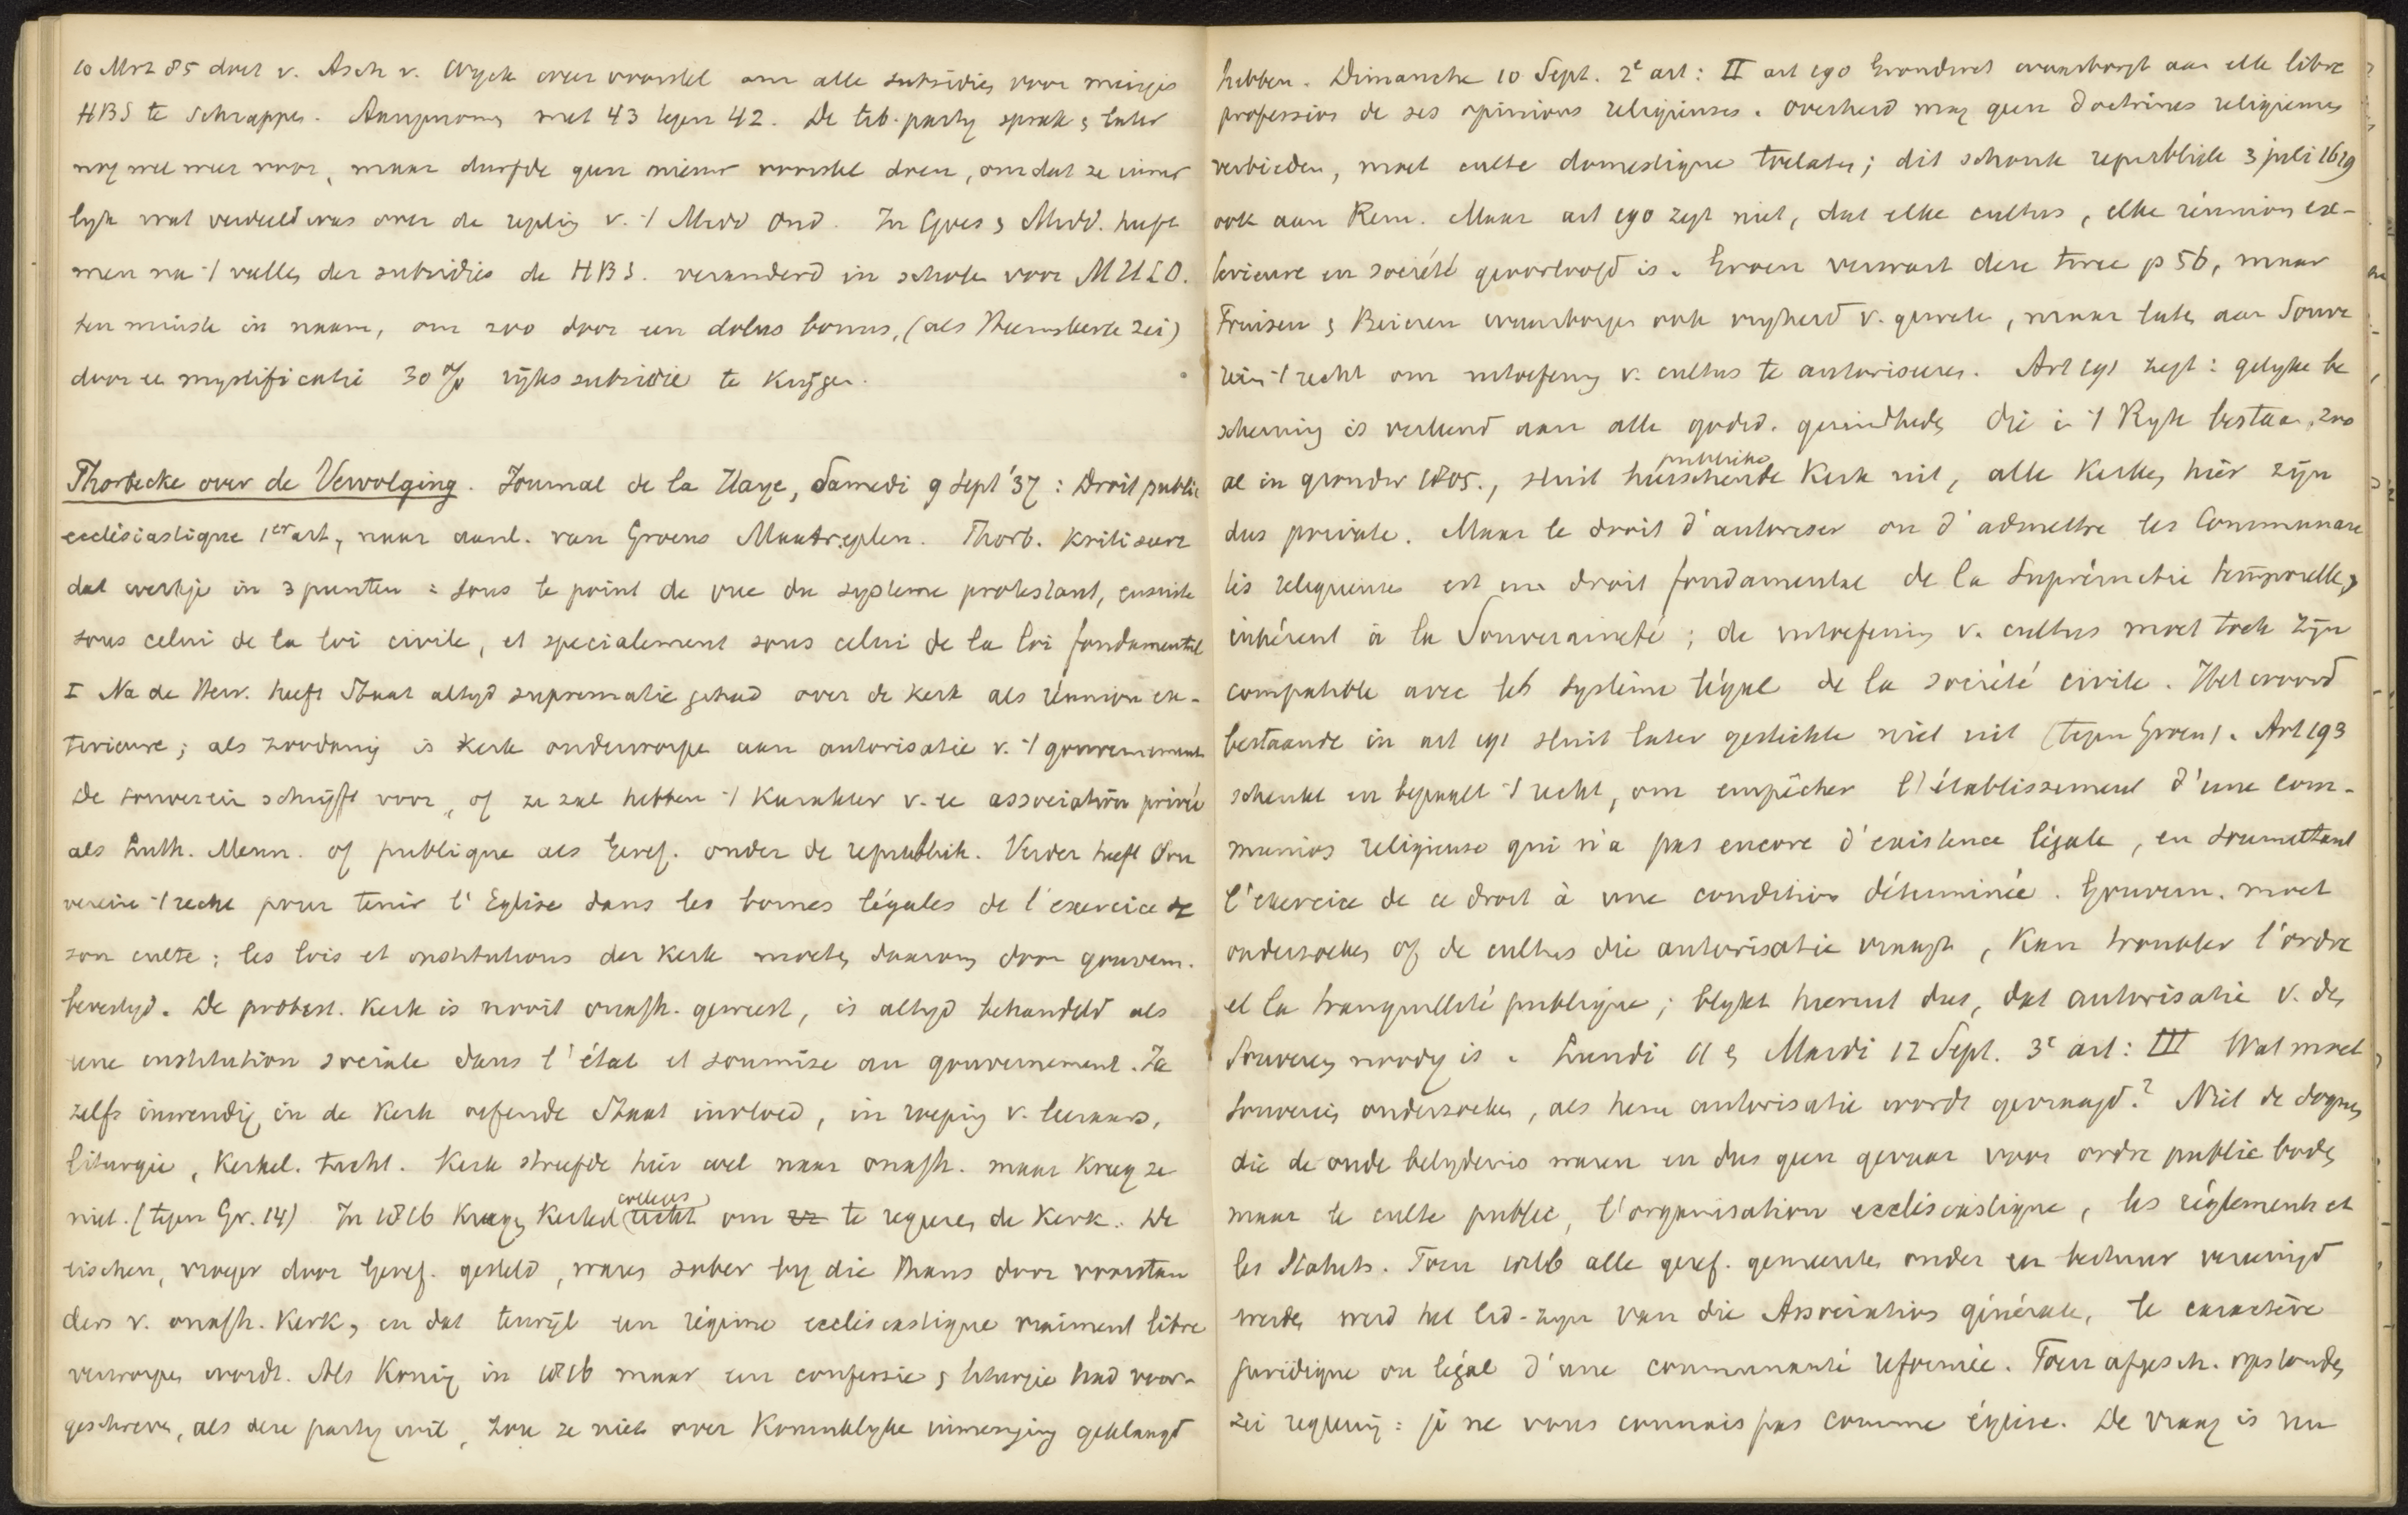 10 Mrt 85 doet v. Asch v. Wyck even voorstel om alle subsidies voor meisjes
HBS te schrappen. Aangenomen met 43 tegen 42. De lib. party sprak & later
nog wel meer voor, maar durfde geen nieuw voorstel doen, omdat ze inner
lyk wat verdeeld was over de regeling v. 't Midd Ond. In Goes & Midd. heeft
men na 't vallen der subsidies de HBS. veranderd in scholen voor MULO.
ten minste in naam, om zoo door een dolus bonus, (als Heemskerk zei)
door ee mystificatie 30% rijkssubsidie te krijgen.
Thorbecke over de Vervolging. Journal de la Haye, Samedi 9 Sept '37: Droit public
ecclésiastique 1er art, naar aanl. van Groens Maatregelen. Thorb. kritiseert
dat werkje in 3 punten: sous le point de vue du systeme protestant, ensuite
sous celui de la loi civile, et specialement sous celui de la loi fondamental
I Na de Herv. heeft Staat altyd suprematie gehad over de kerk als réunion ex-
terieure; als zoodanig is kerk onderworpen aan autorisatie v. 't gouvernement
De souverein schrijft voor, of ze zal hebben 't karakter v. ee association privée
als Luth. Menn. of publique als Geref. onder de republiek. Verder heeft Sou
verein 't recht pour tenir l'Eglise dans les bornes légales de l'exercice de
son culte; les lois et institutions der kerk moeten daarom door gouvern.
bevestigd. De protest. kerk is nooit onafh. geweest, is altyd behandeld als
une institution sociale dans l'état et soumise au gouvernement. Ja
zelfs inwendig in de kerk oefende Staat invloed, in roeping v. leeraars,
liturgie, kerkel. tucht. Kerk streefde hier wel naar onafh. maar kreeg ze
niet. (tegen Gr. 14) In 1816 kregen kerkel. colleges om te regeren de kerk. De
eischen, vroeger door Geref. gesteld, waren sober by die thans door voorstan
ders v. onafh. kerk, en dat terwijl een régime ecclésiastique vraiment libre
verworpen wordt. Als Koning in 1816 maar een confessie & liturgie had voor-
geschreven, als deze party wil, zou ze niet over Koninklyke inmenging geklaagd
hebben. Dimanche 10 Sept. 2e art: II art 190 Grondwet waarborgt aan elk libre
profession de ses opinions religieuses. Overheid mag geen doctrines religieuses
verbieden, moet culte domestique toelaten; dit schonk republiek 3 juli 1619
ook aan Rem. Maar art 190 zegt niet, dat elke cultus, elke réunion exte-
terieure en société geoorloofd is. Groen verwart deze twee p 56, maar
Pruisen & Beieren waarborgen ook vryheid v. geweten, maar laten aan Souve
rein 't recht om uitoefening v. cultus te autoriseren. Art 191 zegt: gelyke be
scherming is verleend aan alle godsd. gezindheden die i 't Ryk bestaan, zoo
al in grondw 1805., sluit publieke heerschende kerk uit, alle kerken hier zijn
dus private. Maar le droit d'autoriser ou d'admettre les Communau
tés religieuses est un droit fondamental de la Suprématie temporelle,
inhérent à la Souveraineté; de uitoefening v. cultus moet toch zijn
compatible avec le système légal de la société civile. Het woord
bestaande in art 191 sluit later gestichte niet uit (tegen Groen). Art 193
schenkt en bepaalt 't recht, om empêcher l'établissement d'une com-
munion religieuse qui n'a pas encore d'existence légale, en soumettant
l'exercice de ce droit à une condition déterminée. Gouvern. moet
onderzoeken of de cultus die autorisatie vraagt, kan troubler l'ordre
et la tranquillité publique; blykt hieruit dus, dat autorisatie v. den
Souverein noodig is. Lundi 11 & Mardi 12 Sept. 3e art: III Wat moet
Souverein onderzoeken, als hem autorisatie wordt gevraagd? Niet de dogmen
die de oude belydenis waren en dus geen gevaar voor ordre public boden
maar le culte public, l'organisation ecclésiastique, les réglements et
les Statuts. Toen 1816 alle geref. gemeenten onder een bestuur vereenigd
werden werd het lid-zyn van die Association générale, le caractère
juridique ou légal d'une communauté reformée. Toen afgesch. opstonden
zei regering: je ne vous connais pas comme église. De vraag is nu